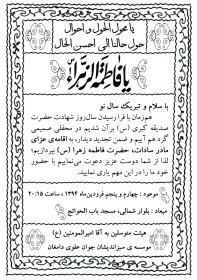 یا محول الحول و احوال
حول حالنا الی احسن الحال
یا فاطمة الزهراء
با سلام و تبریک سال نو
همزمان با فرا رسیدن سالروز شهادت حضرت
صدیقه کبری (س) برآن شدیم در محفلی صمیمی
گرد هم آییم و ضمن تجدید دیدار، به اقامه‌ی عزای
مادر سادات، حضرت فاطمه زهرا (س) بپردازیم؛
لذا از شما دوست عزیز دعوت می‌نماییم با حضور
خود ما را در این مهم یاری نمایید.
موعود: چهارم و پنجم فروردین‌ماه ۱۳۹۴، ساعت ۲۰:۱۵
میعاد: بلوار شمالی، مسجد باب الحوائج
هیئت متوسلین به آقا امیرالمومنین (ع)
موسسه ی سبزاندیشان جوان علوی دامغان